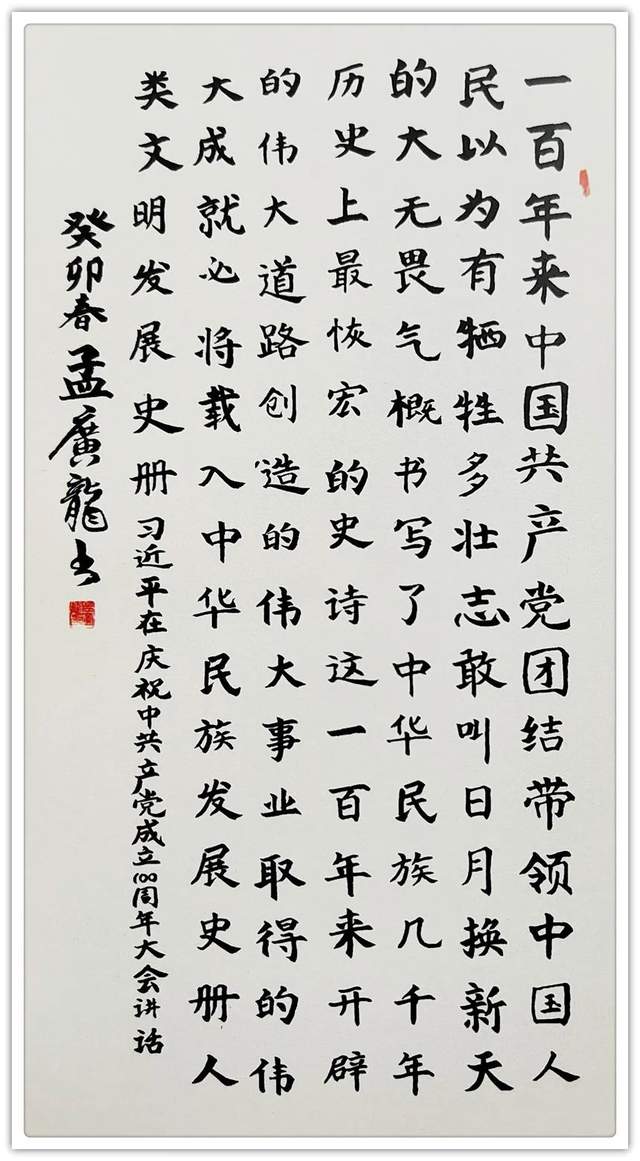 一百年来中国共产党团结带领中国人
民以为有牺牲多壮志敢叫日月换新天
的大无畏气概书写了中华民族几千年
历史上最恢宏的史诗这一百年来开辟
的伟大道路创造的伟大事业取得的伟
大成就必将载入中华民族发展史册人
类文明发展史册 习近平在庆祝中共产党成立100周年大会讲话
癸卯春孟廣龍书